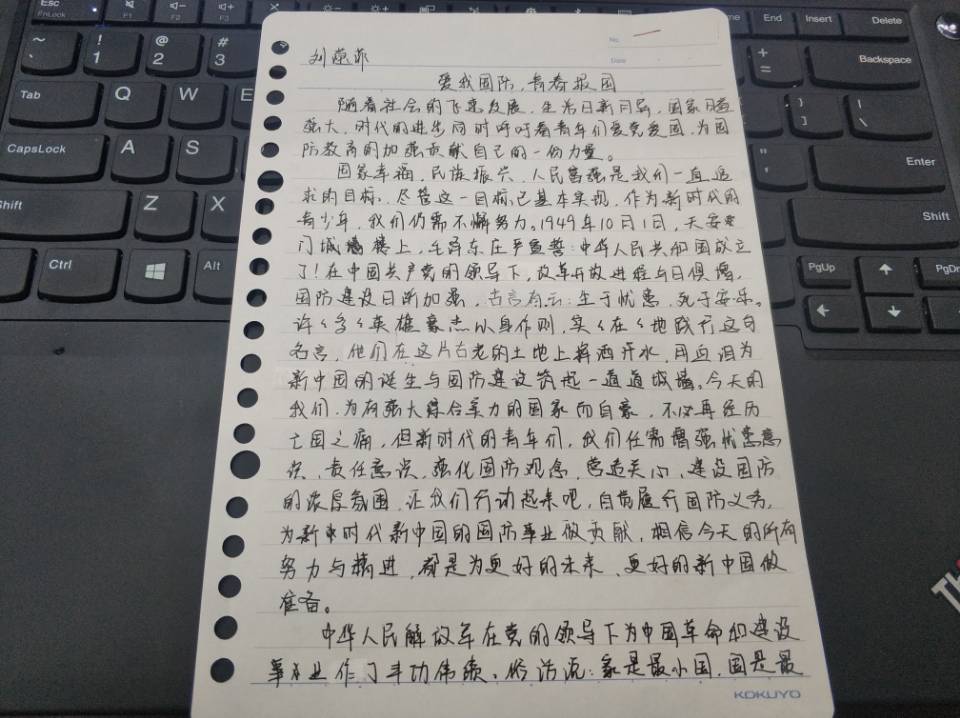 Esc
FnLock
F1
F2
F3
End
Insert
Delete
~
`
!
1
@
2
#
3
+
=
Backspace
Tab
Q
W
E
}
]
|
\
CapsLock
A
S
"
'
Enter
Shift
Z
X
Shift
Ctrl
Alt
PgUp
PgDn
Thi
No.
Date
刘燕菲
爱我国防,青春报国
随着社会的飞速发展,生活日新月异,国家日益
强大,时代的进步同时呼吁着青年们爱党爱国,为国
防教育的加强贡献自己的一份力量。
国家幸福,民族振兴,人民富强是我们一直追
求的目标,尽管这一目标已基本实现,作为新时代的
青少年,我们仍需不懈努力。1949年10月1日,天安
门城楼上,毛泽东庄严宣誓:中华人民共和国成立
了!在中国共产党的领导下,改革开放进程与日俱增,
国防建设日渐加强,古言有云:生于忧患,死于安乐。
许许多多英雄豪杰以身作则,实实在在地践行这句
名言,他们在这片古老的土地上挥洒汗水,用血泪为
新中国的诞生与国防建设筑起一道道城墙。今天的
我们,为有强大综合实力的国家而自豪,不必再经历
亡国之痛,但新时代的青年们,我们任需增强忧患意
识、责任意识,强化国防观念,营造关心、建设国防
的浓厚氛围,让我们行动起来吧,自觉履行国防义务,
为新时代新中国的国防事业做贡献,相信今天的所有
努力与精进,都是为更好的未来、更好的新中国做
准备。
中华人民解放军在党的领导下为中国革命和建设
事业作了丰功伟绩。俗话说:家是最小国,国是最
KOKUYO